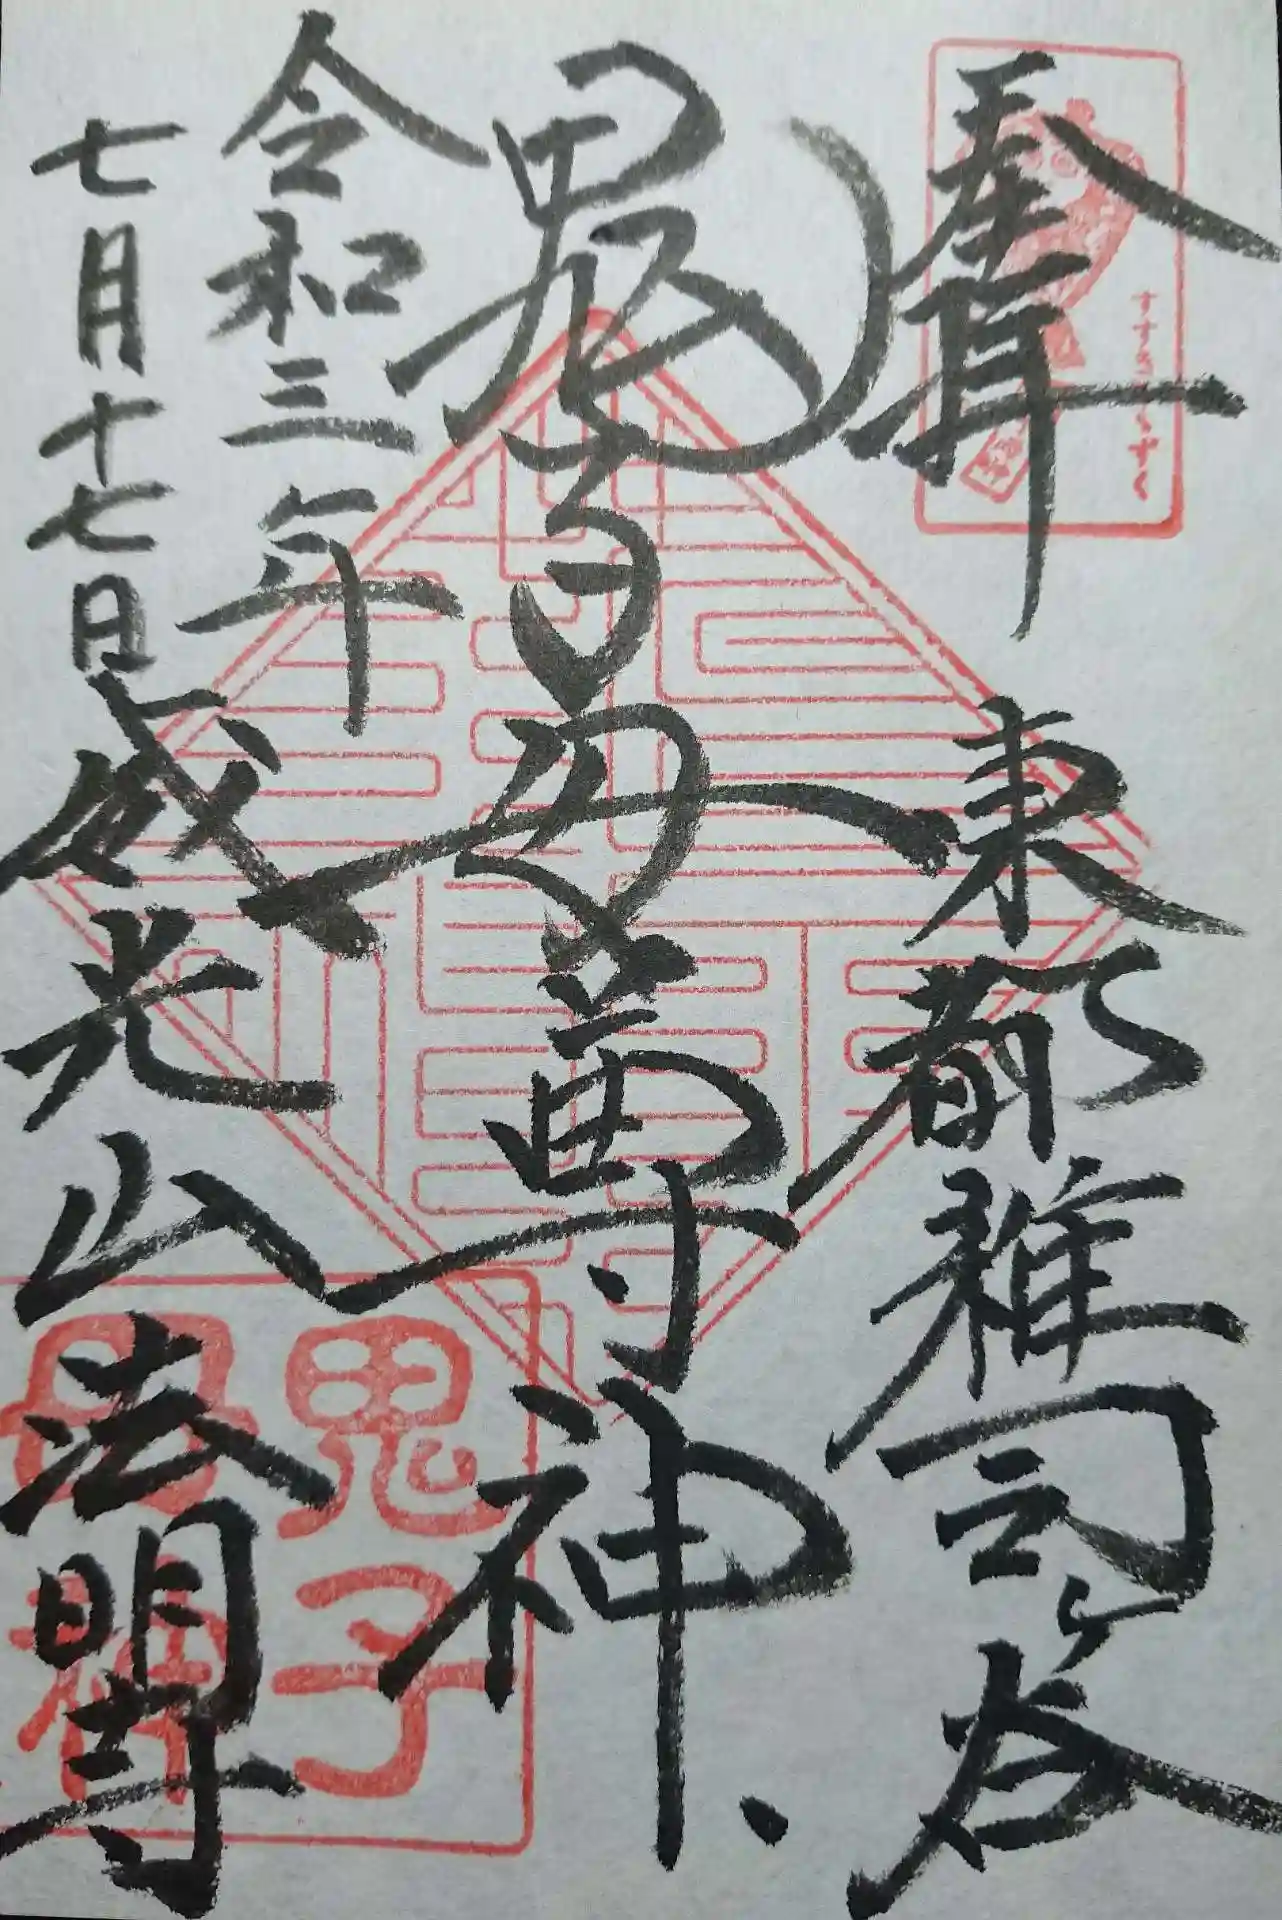 奉拝 東都雑司ヶ谷
すすきみみずく
鬼子母尊神
令和三年
七月十七日 威光山法明寺
鬼子
母神